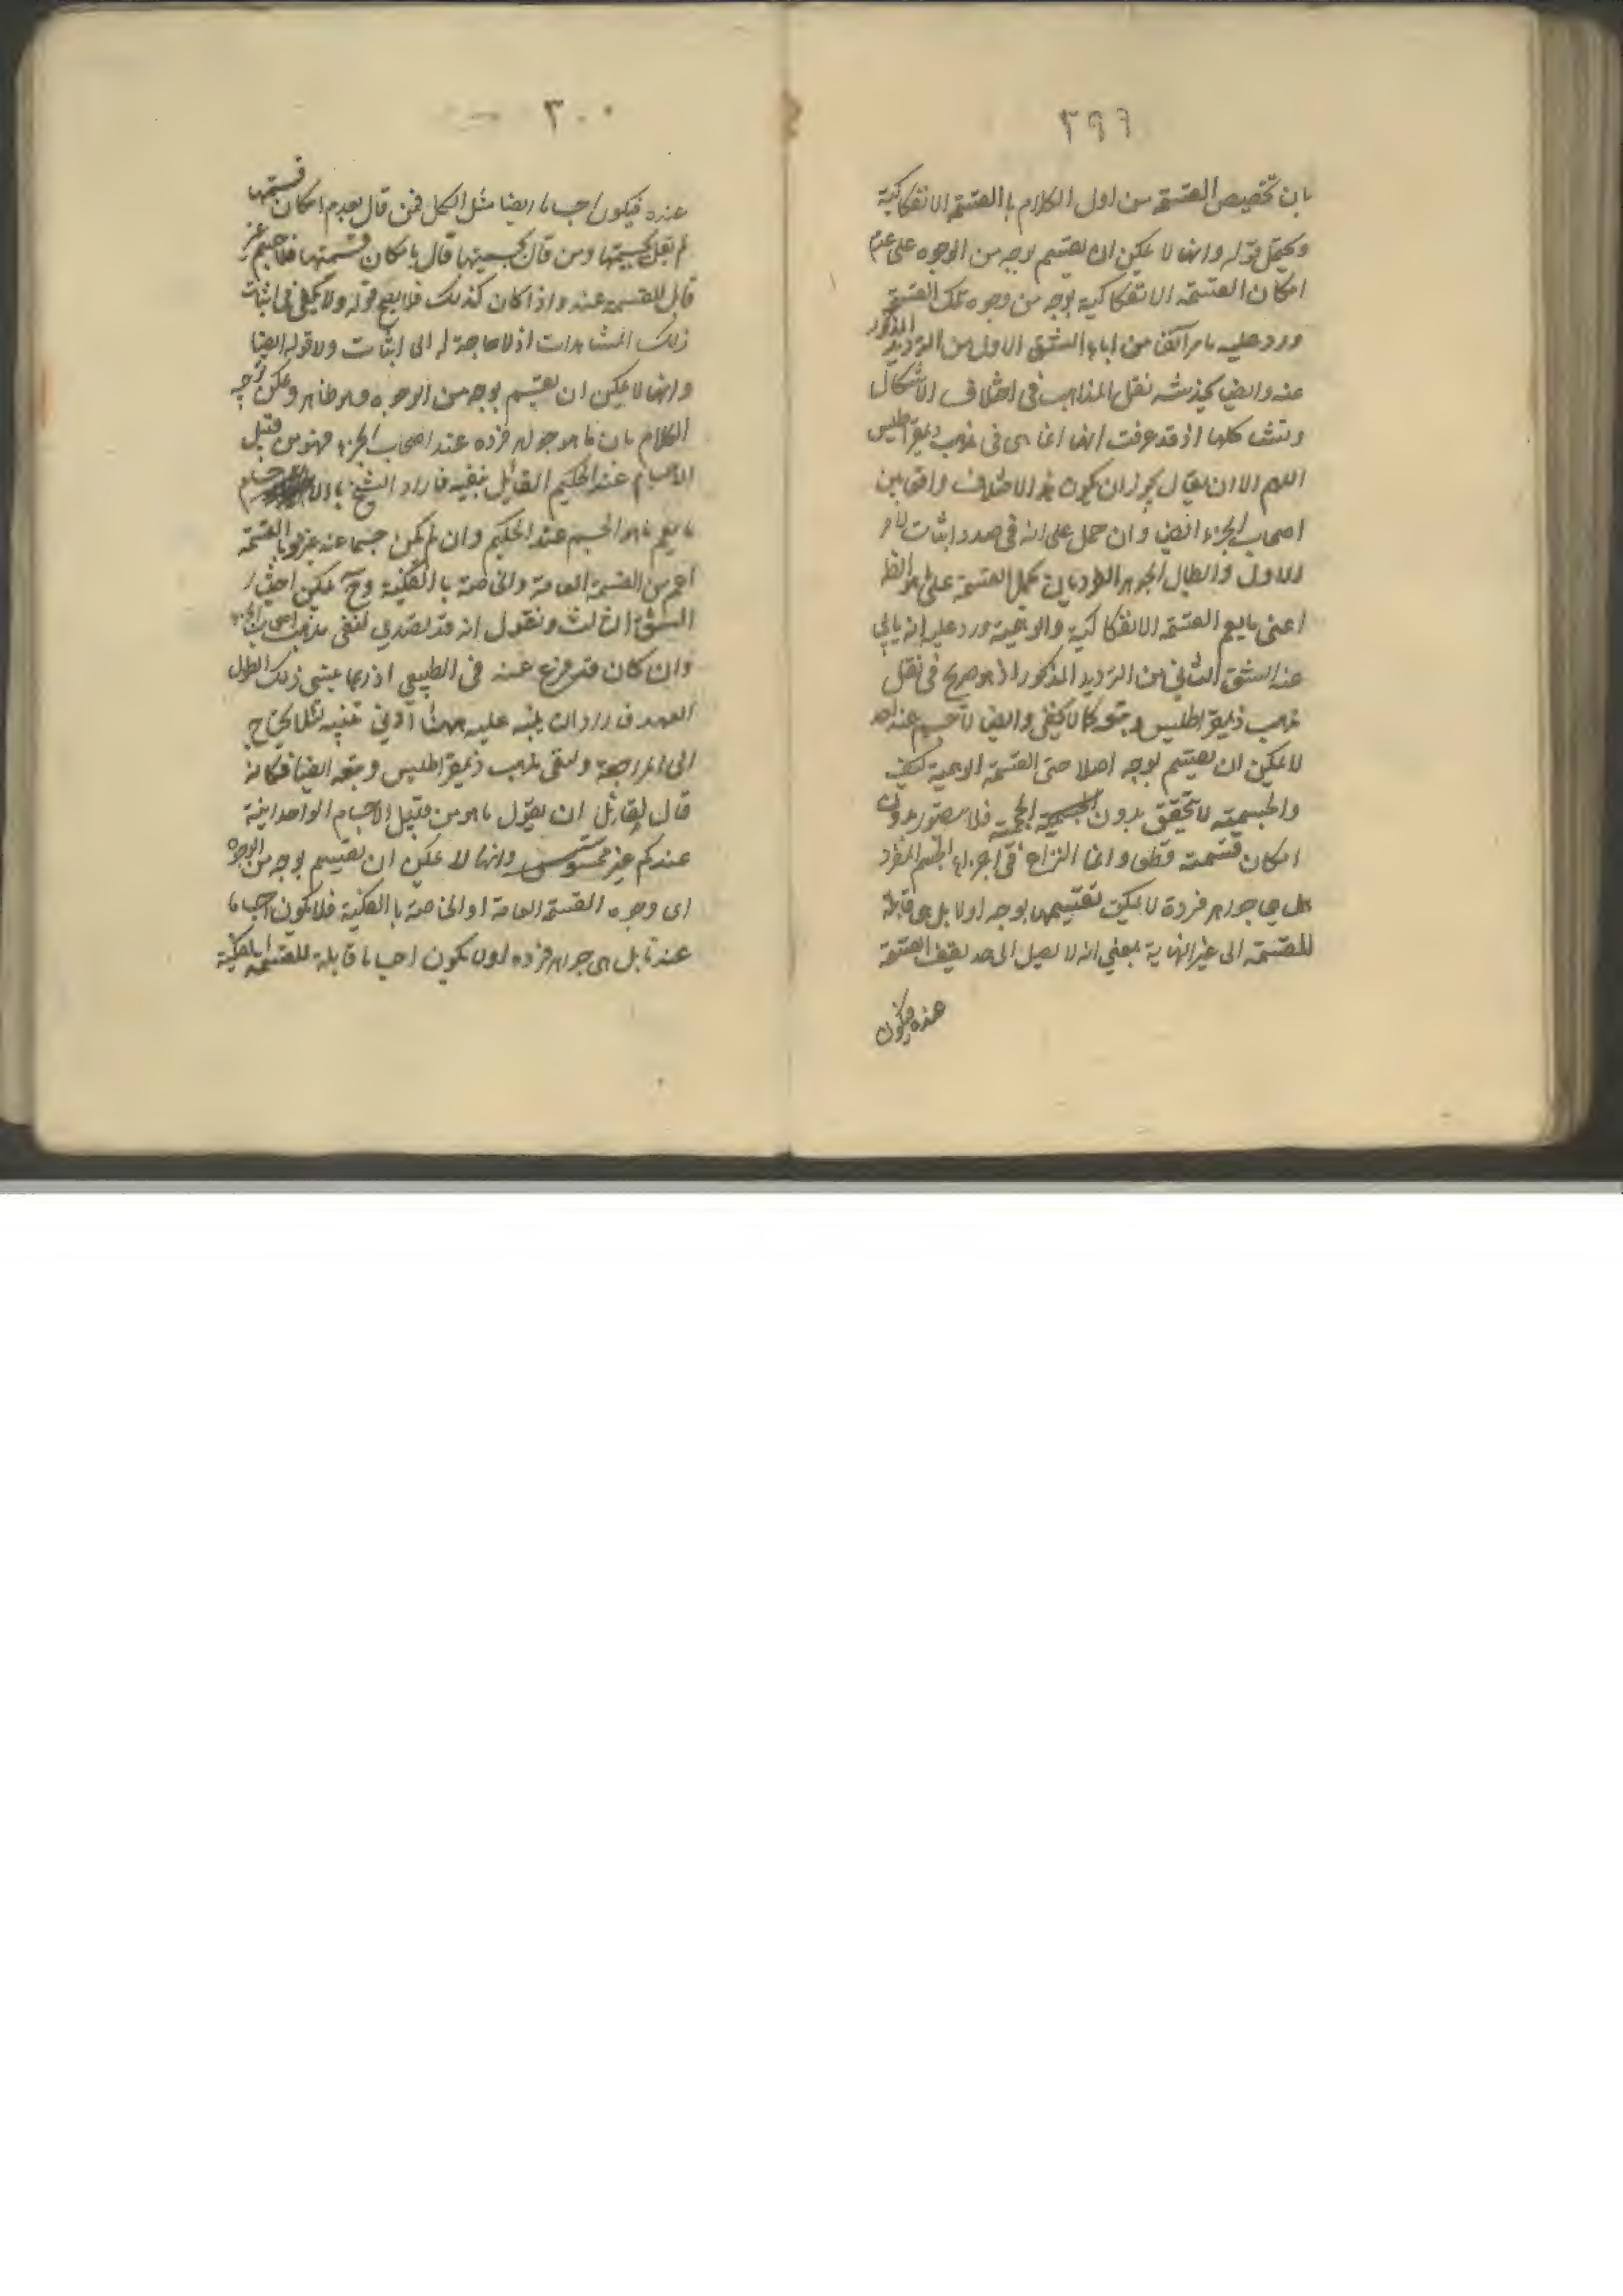 ٢٩٩
بان تخصيص القسمة من اول الكلام بالقسمة الانفكاكية
ويحمل قوله وانها لا يمكن ان يقسم بوجه من الوجوه على عدم
امكان القسمة الانفكاكية بوجه من وجوه تلك القسمة
ورد عليه ما مر آنفا من اباء الشق الاول من الترديد المذكور
عنه وايضا يخدشه نقل المذاهب في اختلاف الاشكال
كلها اذ قد عرفت انها انما هى فى مذهب ذيمقراطيس
اللهم الا ان يقال يجوز ان يكون هذا الاختلاف واقعا بين
اصحاب الجزء ايضا وان حمل على انه في صدد اثبات الامر
الاول وابطال الجوهر الفرد بان يحمل القسمة على ما هو الظ
اعنى ما يعم القسمة الانفكاكية والوهمية ورد عليه انه يابى
عنه الشق الثاني من الترديد المذكور اذ هو صريح في نقل
مذهب ذيمقراطيس وتبعه كما لا يخفى وايضا لا جسم عند احد
لا يمكن ان يقسم بوجه اصلا حتى القسمة الوهمية كيف
والجسمية لا تحقق بدون الجسمية الحجمية فلا يتصور بدون
امكان قسمته قطعا وانما النزاع في اجزاء الجسم المفرد
هل هي جواهر فردة لا يمكن تقسيمها بوجه اولا بل هى قابلة
للقسمة الى غير النهاية بمعنى انه لا يصل الى حد يقف القسمة
عنده فيكون
٣٠٠
عنده فيكون اجساما ايضا مثل الكل فمن قال بعدم امكان قسمتها
لم يقل بجسميتها ومن قال بجسميتها قال بامكان قسمتها فلا جسم غير
قابل للقسمة عنده واذا كان كذلك فلا يصح قوله ولا يكفى فى اثبات
ذلك المشاهدات اذ لا حاجة له الى اثبات ولا قوله ايضا
وانها لا يمكن ان يقسم بوجه من الوجوه وهو ظاهر ويمكن توجيه
الكلام بان ما هو جواهر فرده عند اصحاب الجزء فهو من قبيل
الاجسام عند الحكيم القائل بنفيه فاراد الشيخ بالاجسام
ما يعم ما هو الجسم عند الحكيم وان لم يكن جسما عند غيره وبالقسمة
اعم من القسمة العامة والخاصة بالفكية وح يمكن اختيار
الشق الثالث ونقول انه قد تصدى لنفى مذهب اصحاب الجزء
وان كان قد فرغ عنه فى الطبيعي اذ ربما ينسى ذلك لطول
العهد فاراد ان ينبه عليه ههنا ادنى تنبيه لئلا يحتاج
الى المراجعة ولنفى مذهب ذيمقراطيس وتبعه ايضا فكانه
قال لقائل ان يقول ما هو من قبيل الاجسام الواحدانية
عندكم غير محسوس وانها لا يمكن ان يقسم بوجه من الوجوه
اى وجوه القسمة العامة او الخاصة بالفكية فلا يكون اجساما
عندنا بل هى جواهر فرده اولا يكون اجساما قابلة للقسمة الفكية